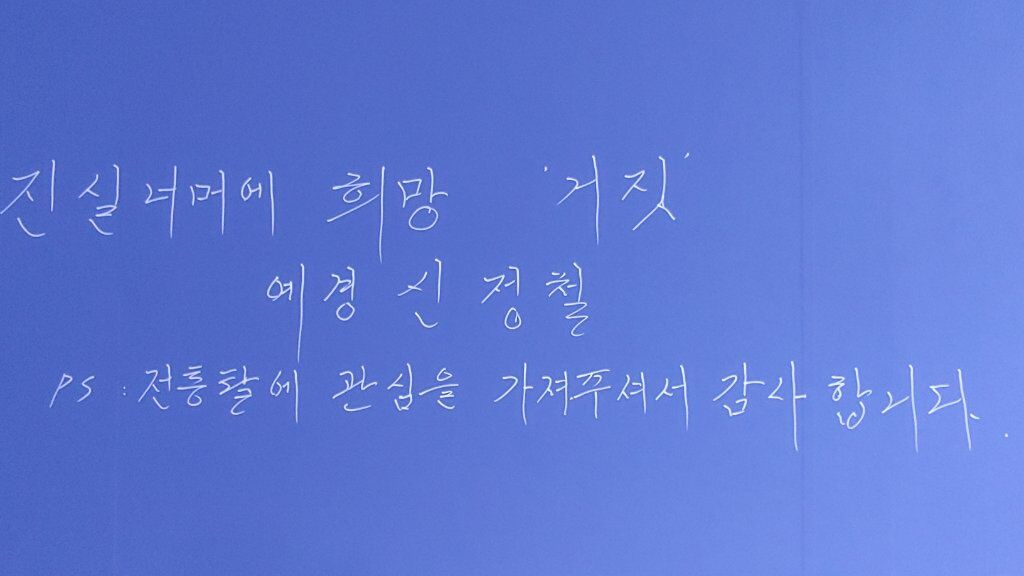 진실너머에 희망 '거짓'
예경 신정철
PS : 전통탈에 관심을 가져주셔서 감사합니다.